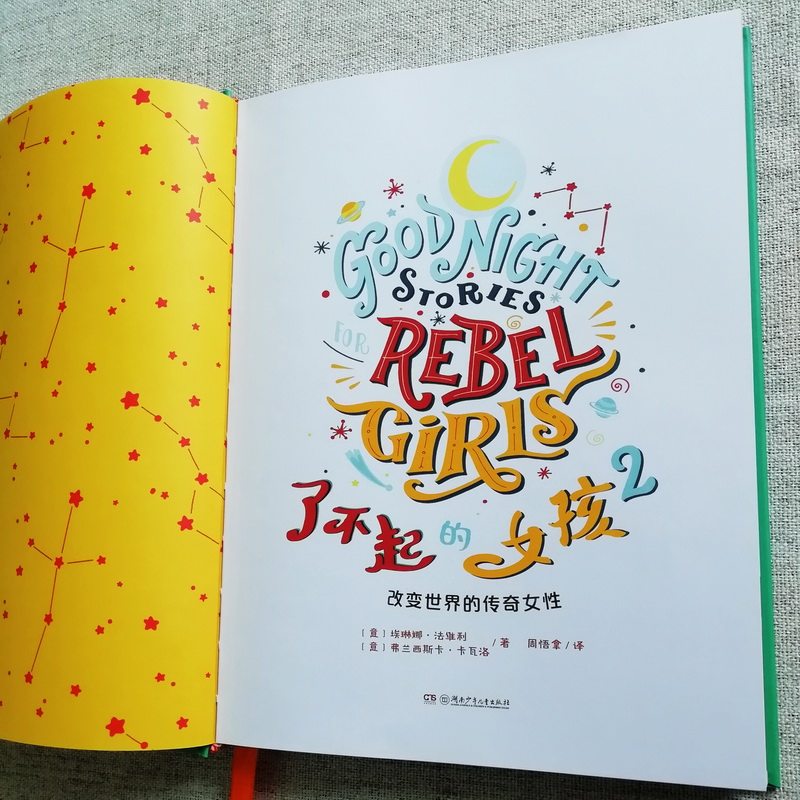 GOOD NIGHT
STORIES
FOR
REBEL
GIRLS
了不起的女孩2
改变世界的传奇女性
[意] 埃琳娜·法维利
[意] 弗兰西斯卡·卡瓦洛 /著 周悟拿/译
湖南少年儿童出版社